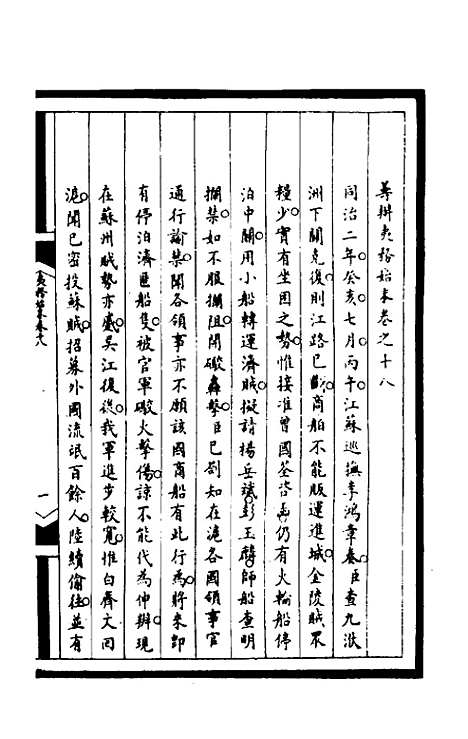 籌辦夷務始末卷之十八
同治二年癸亥七月丙午江蘇巡撫李鴻章奏臣查九洑
洲下關克復則江路已斷商船不能販運進城金陵賊眾
糧少實有坐困之勢惟接准曾國荃咨函仍有火輪船停
泊中關用小船轉運濟賊擬請楊岳斌彭玉麟師船查明
攔禁如不服攔阻開礮轟擊臣已劄知在滬各國領事官
通行諭禁聞各領事亦不願該國商船有此行為將來卽
有停泊濟匪船隻被官軍礮火擊傷諒不能代為伸辦現
在蘇州賊勢亦蹙吳江復後我軍進步較寬惟白齊文回
滬聞已密投蘇賊招募外國流氓百餘人陸續偷往並有
夷務始末卷十八
一